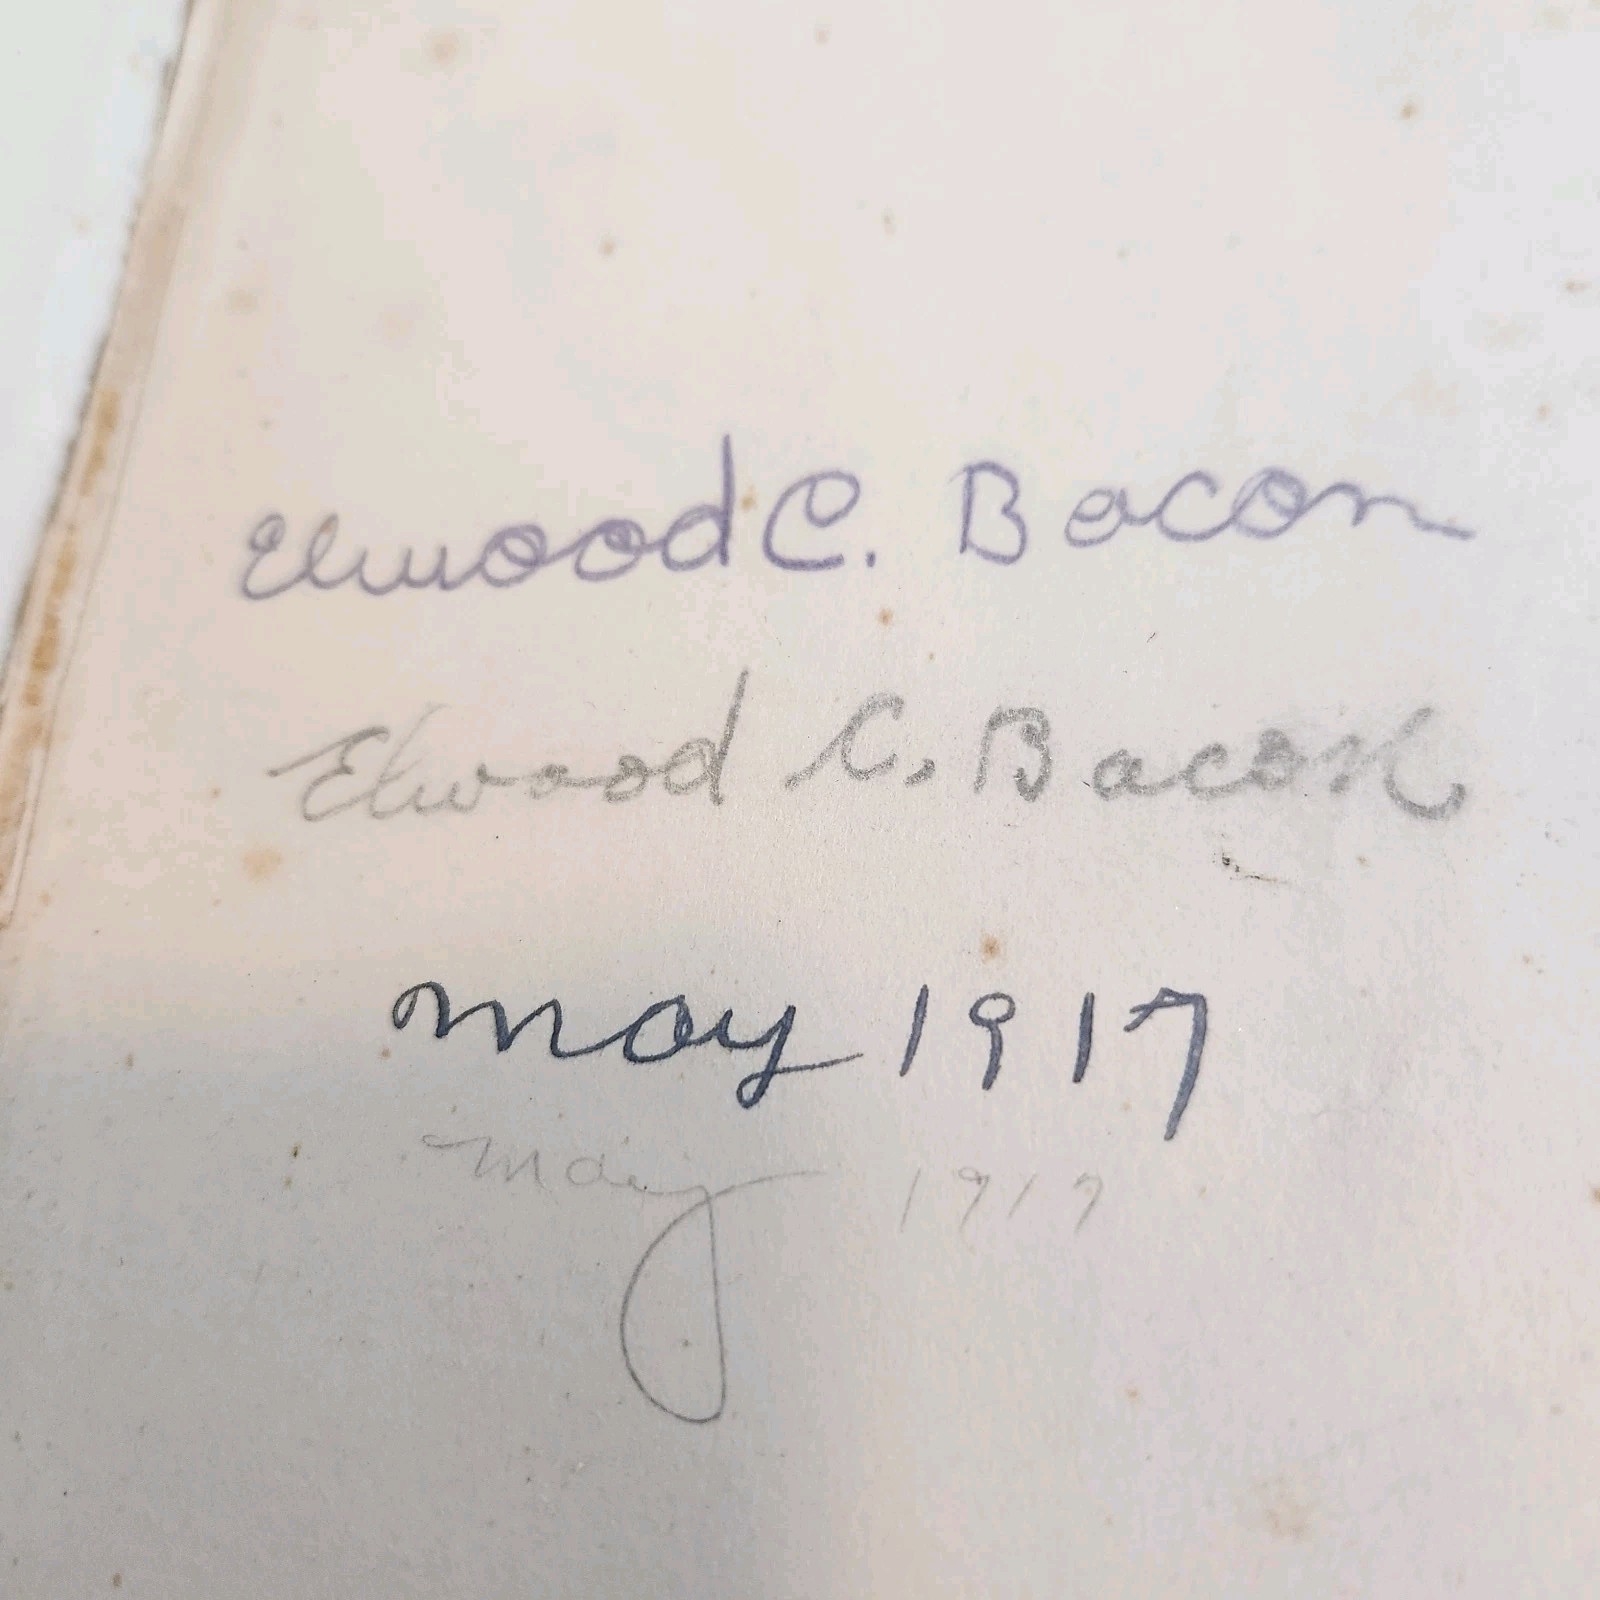 Elwood C. Bacon
Elwood C. Bacon
May 1917
May 1917